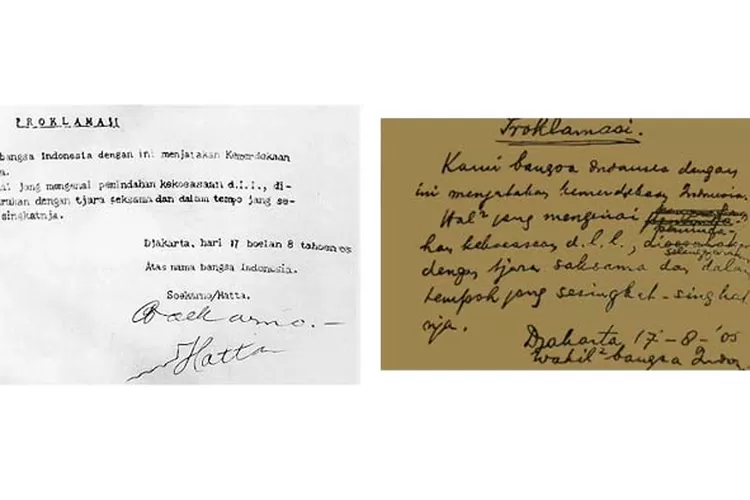 PROKLAMASI
bangsa Indonesia dengan ini menjatakan Kemerdekaan
a.
al jang mengenai pemindahan kekoeasaan d.l.l., di-
arakan dengan tjara seksama dan dalam tempo jang se-
singkatnja.
Djakarta, hari 17 boelan 8 tahoen 05
Atas nama bangsa Indonesia.
Soekarno/Hatta.
Soekarno.
Hatta
Proklamasi.
Kami bangsa Indonesia dengan
ini menjatakan kemerdekaan Indonesia.
Hal² jang mengenai
peminda-
han kekoeasaan d.l.l.,
diselenggarakan
dengan tjara saksama dan dalam
tempoh jang sesingkat-singkat
nja.
Djakarta, 17-8-'05
Wakil² bangsa Indon